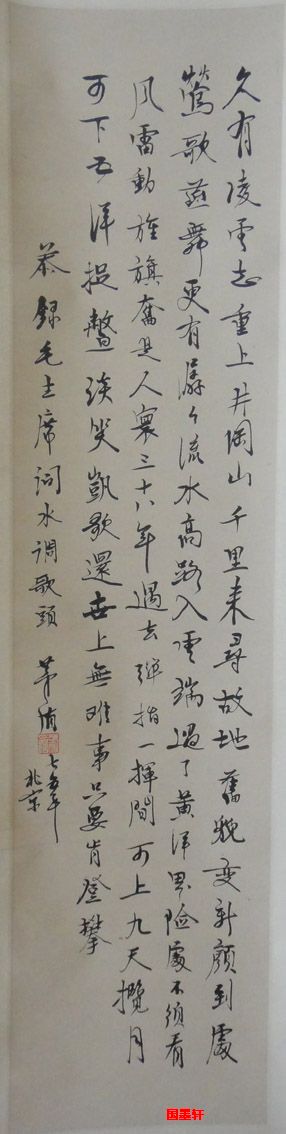 久有凌雲志重上井岡山千里来尋故地舊貌变新顏到處
鶯歌燕舞更有潺々流水高路入雲端過了黃洋界险處不須看
风雷動旌旗奮是人寰三十八年過去弹指一揮間可上九天攬月
可下五洋捉鱉谈笑凱歌還世上無难事只要肯登攀
恭録毛主席词水调歌頭 茅盾 七五年
北京
国墨轩